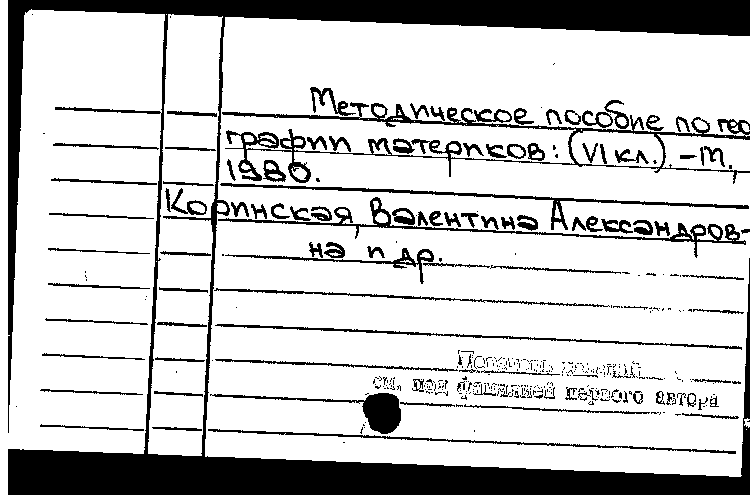 Методическое пособие по гео
графии материков: (VI кл.). -М.,
1980.
Коринская, Валентина Александров-
на и др.
см. под фамилией первого автора